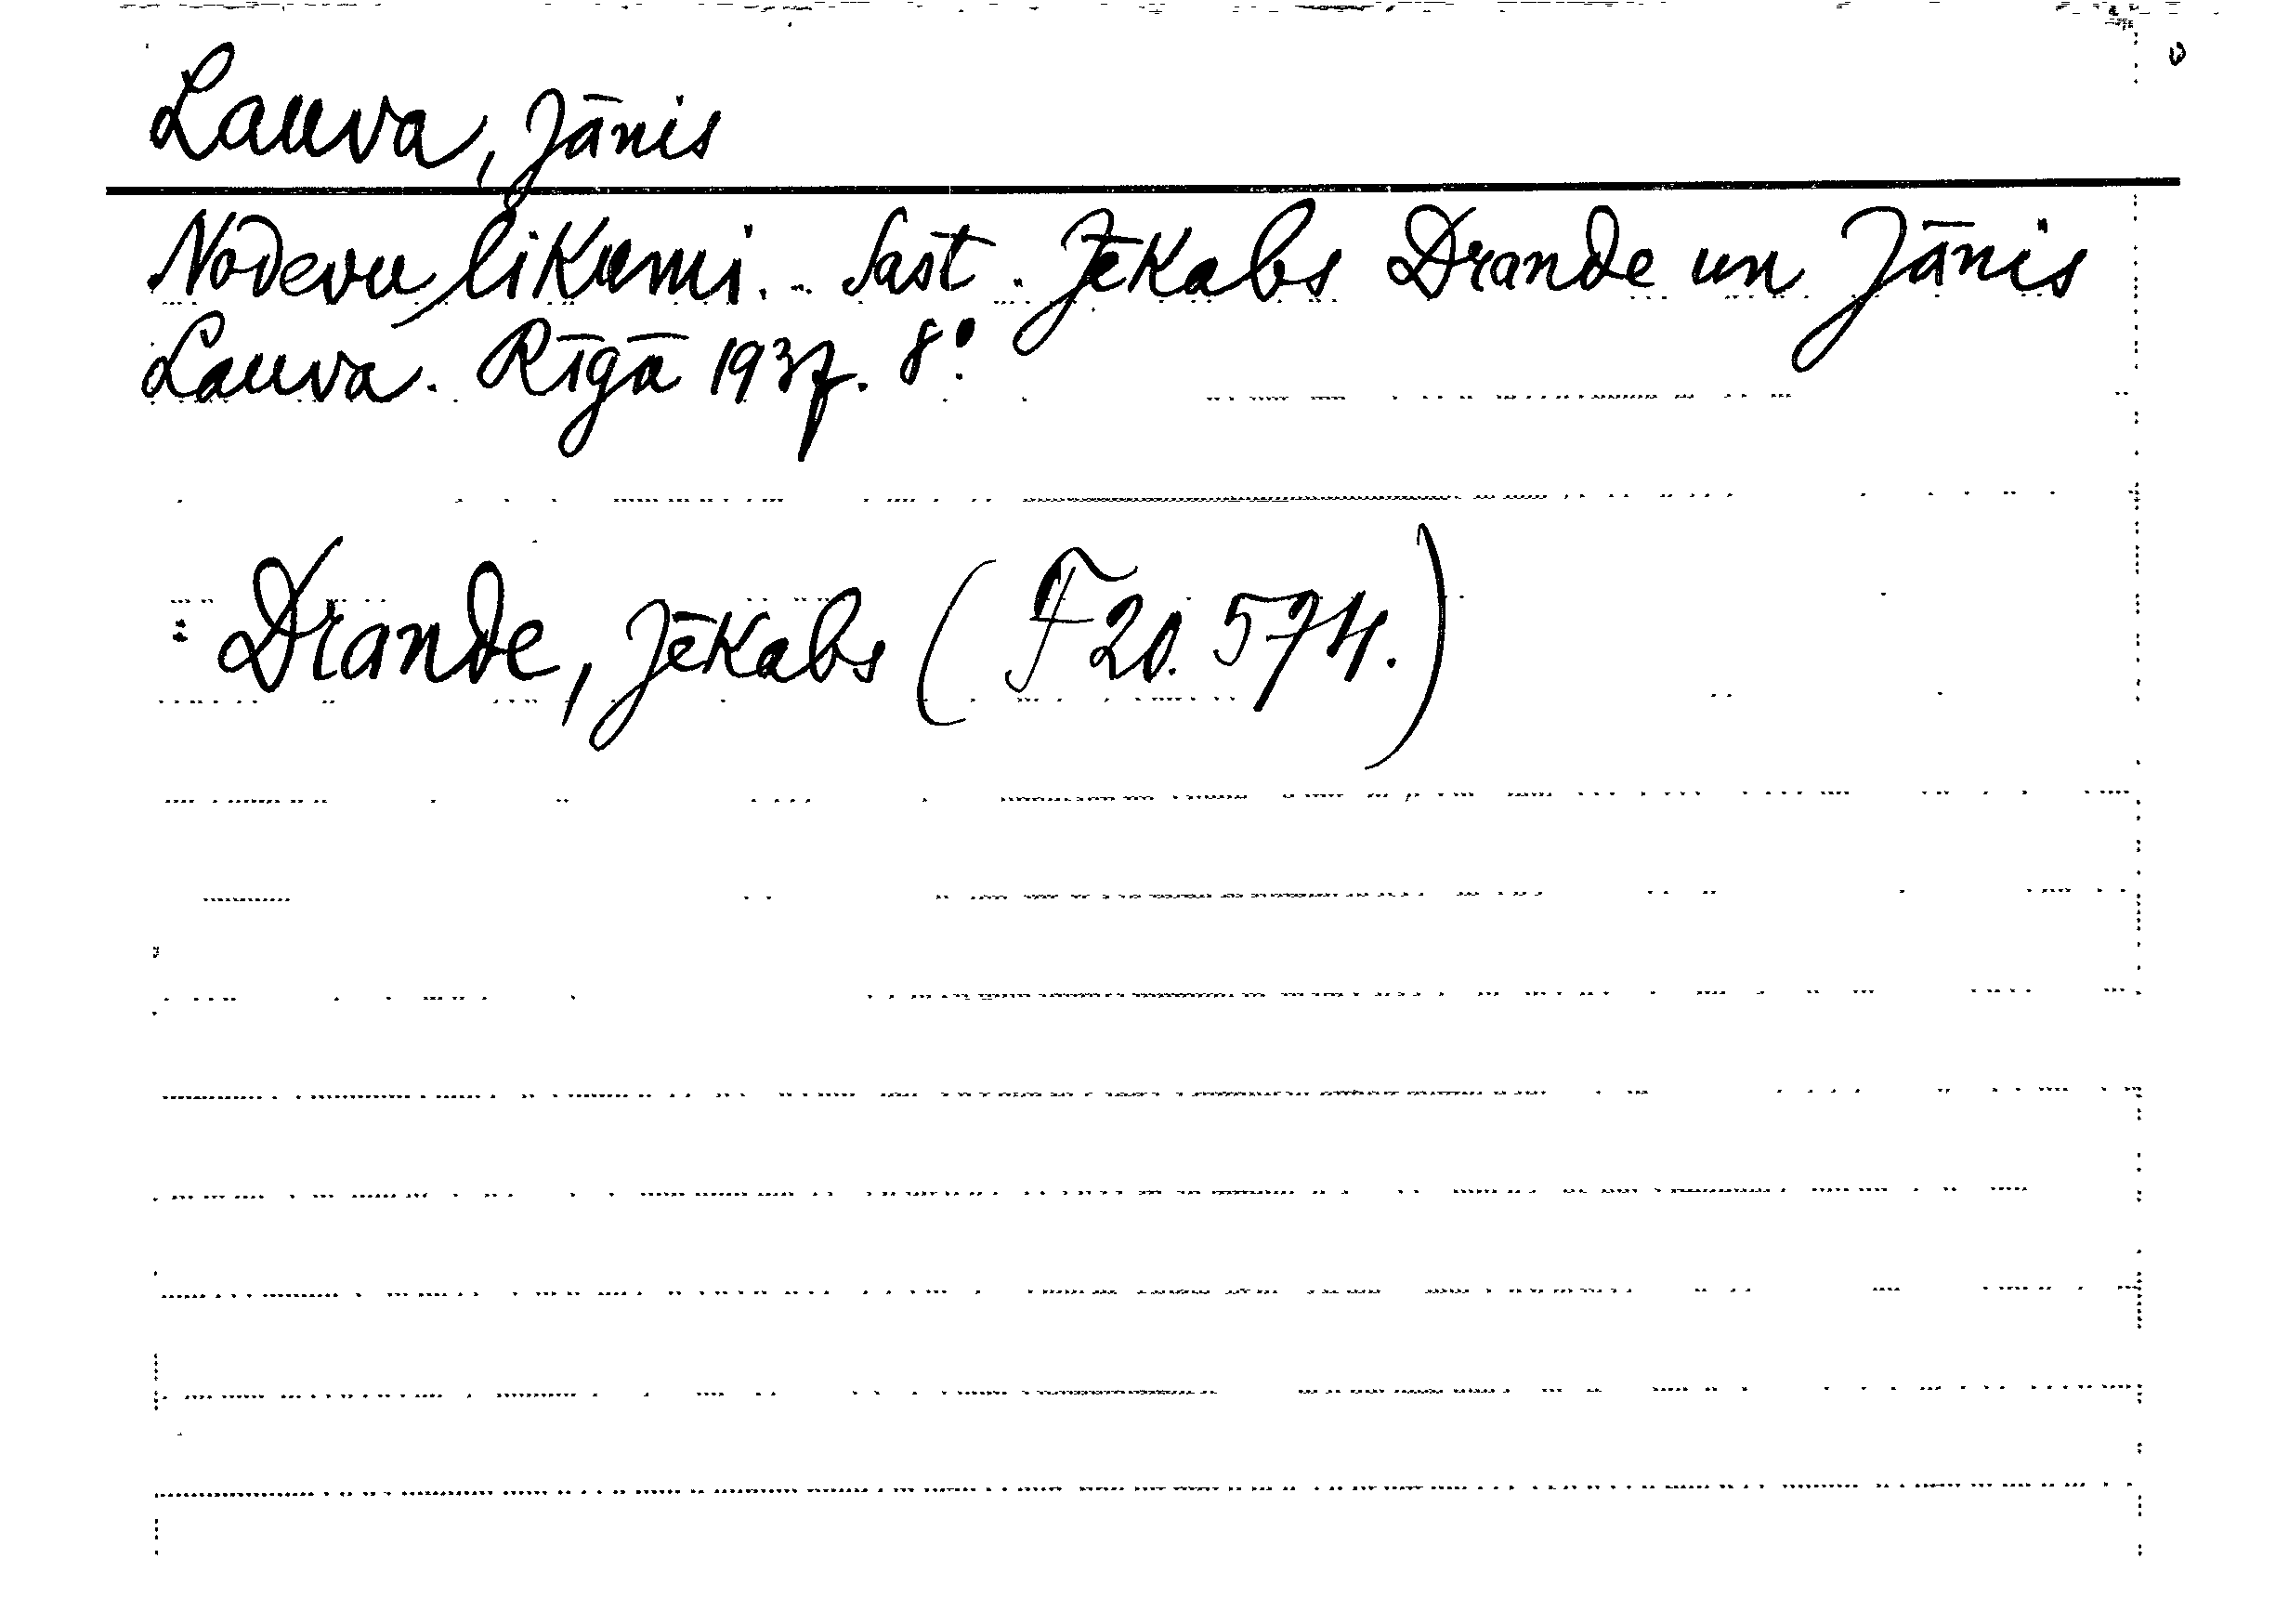 Lauva, Jānis
Nodevu likumi. .. Sast. Jēkabs Drande un Jānis
Lauva. Rīgā 1937. 8°.
Drande, Jēkabs (F 20. 574.)